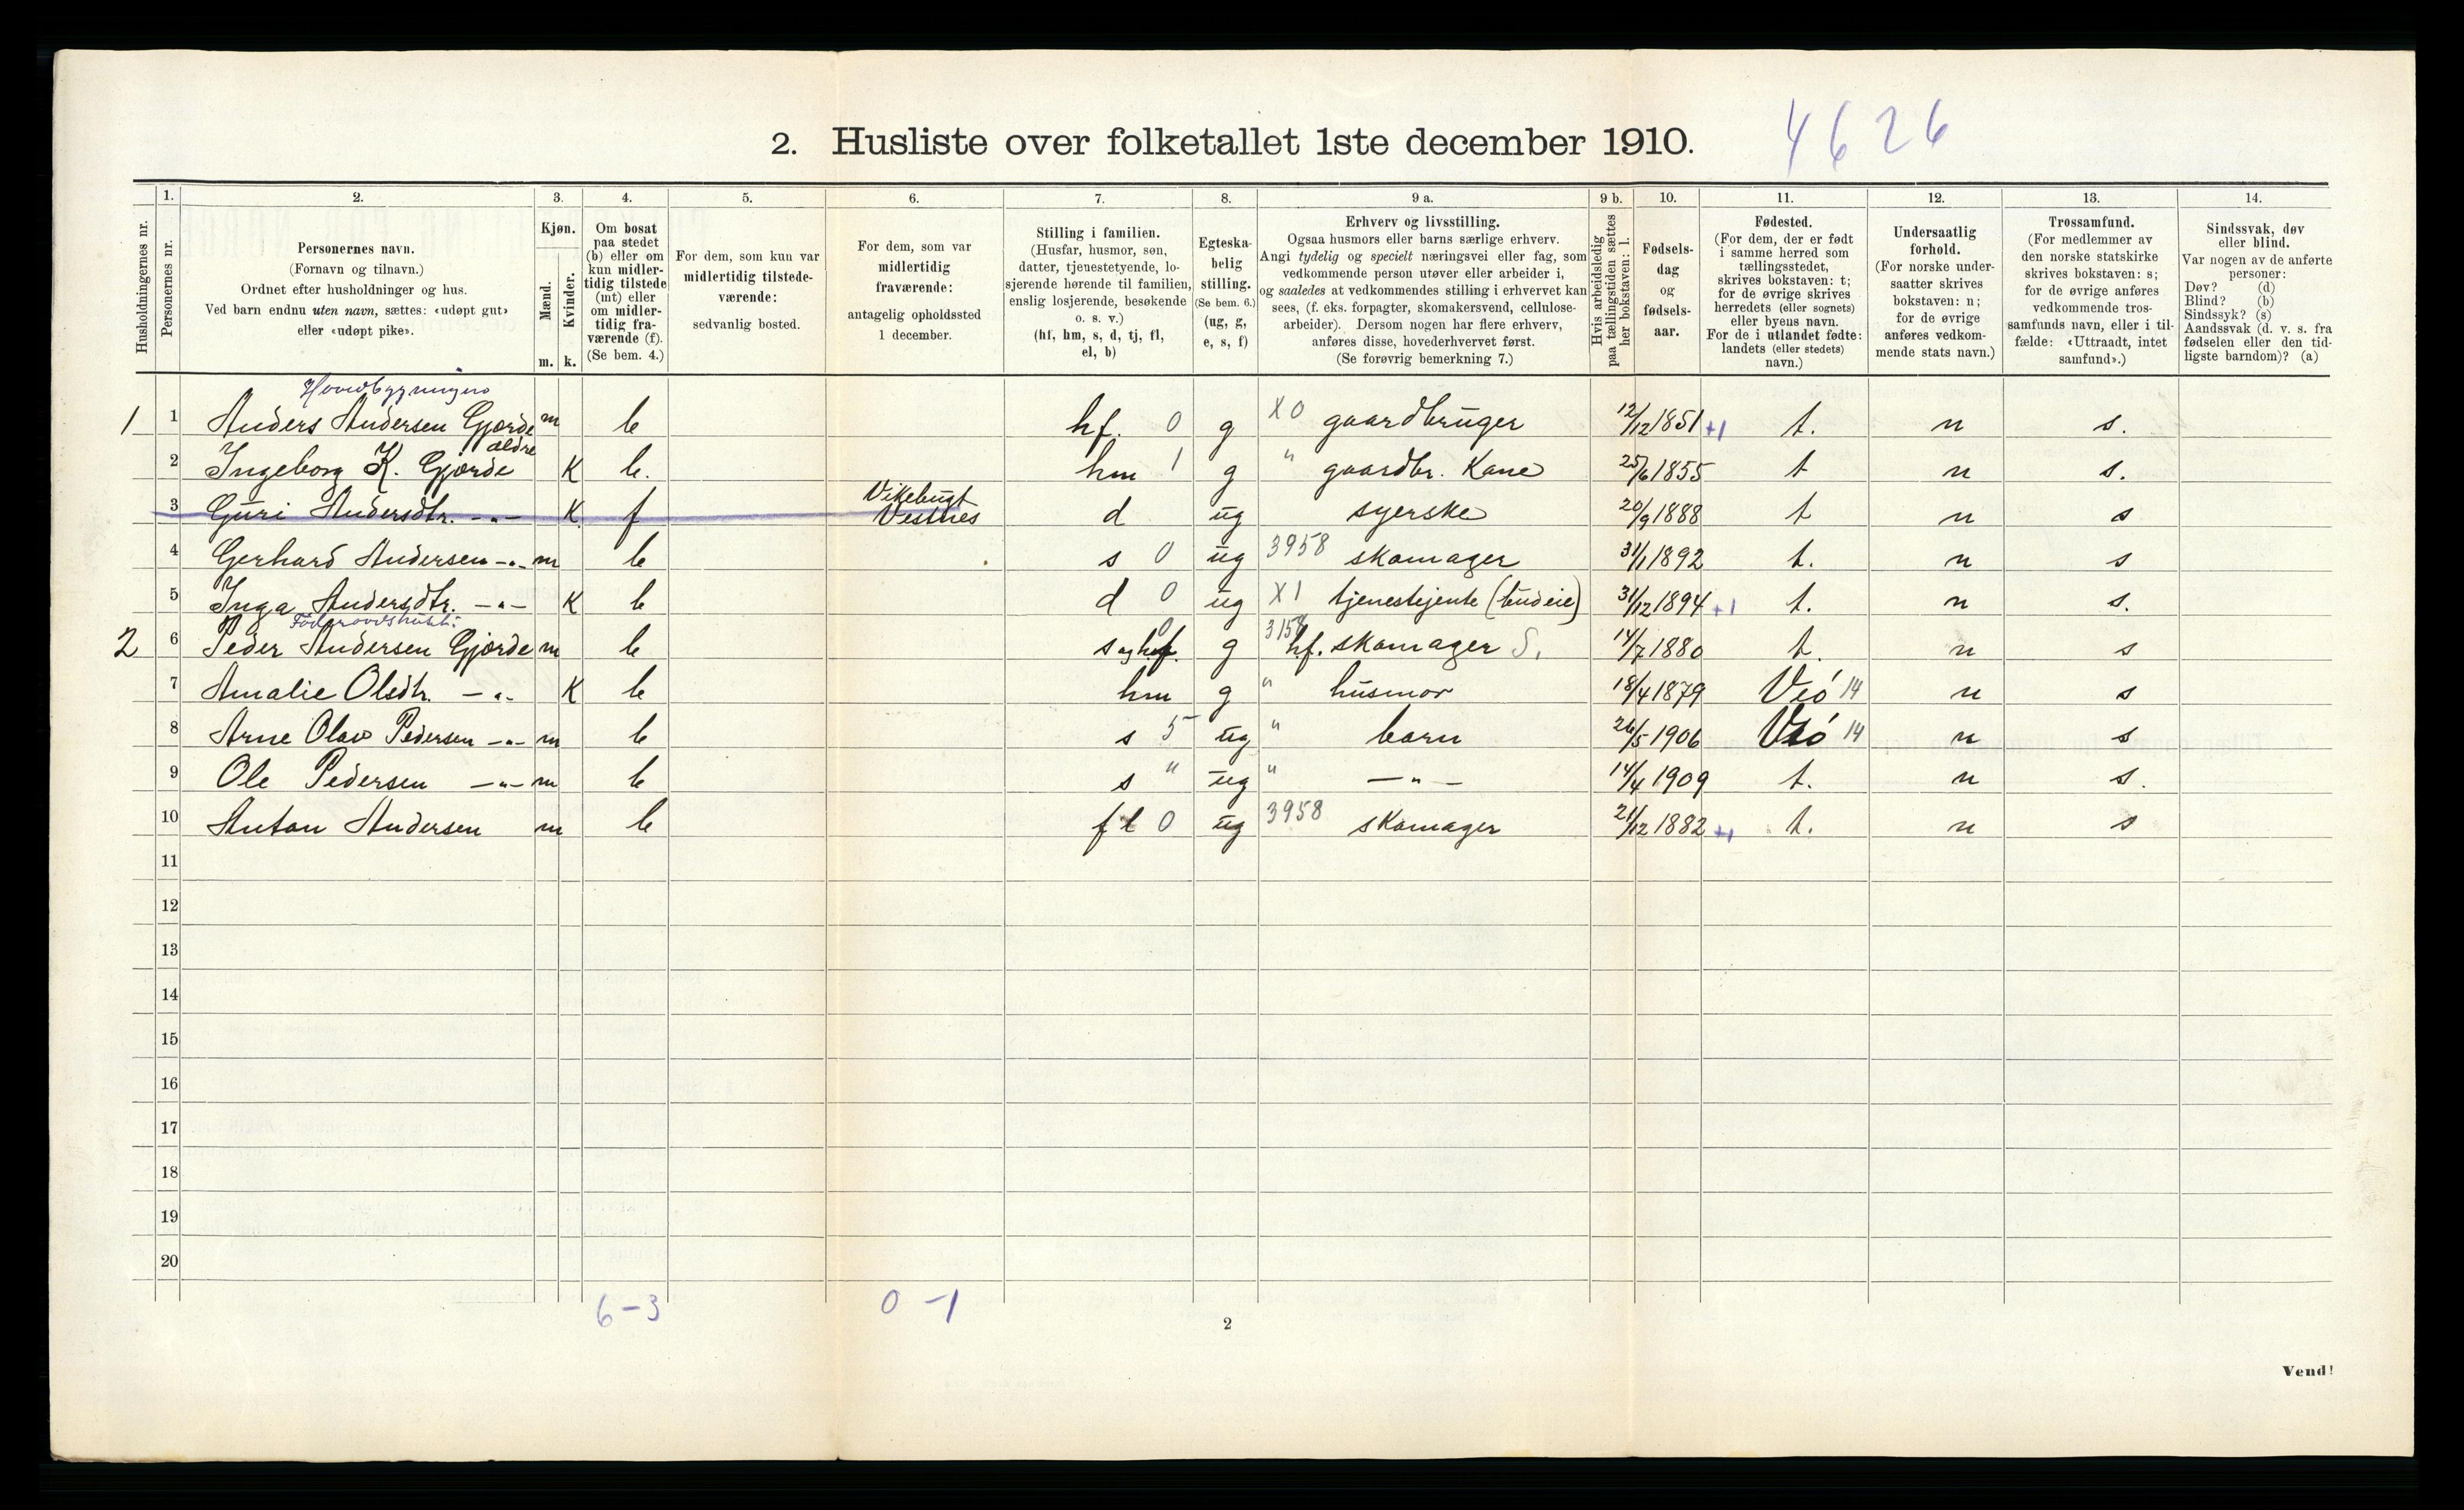 2. Husliste over folketallet 1ste december 1910. 4626
Husholdningernes nr.
1. Personernes nr.
2. Personernes navn.
(Fornavn og tilnavn.)
Ordnet efter husholdninger og hus.
Ved barn endnu uten navn, sættes: «udøpt gut»
eller «udøpt pike».
3. Kjøn.
Mænd. m.
Kvinder. k.
4. Om bosat
paa stedet
(b) eller om
kun midler-
tidig tilstede
(mt) eller
om midler-
tidig fra-
værende (f).
(Se bem. 4.)
5. For dem, som kun var
midlertidig tilstede-
værende:
sedvanlig bosted.
6. For dem, som var
midlertidig
fraværende:
antagelig opholdssted
1 december.
7. Stilling i familien.
(Husfar, husmor, søn,
datter, tjenestetyende, lo-
sjerende hørende til familien,
enslig losjerende, besøkende
o. s. v.)
(hf, hm, s, d, tj, fl,
el, b)
8. Egteska-
belig
stilling.
(Se bem. 6.)
(ug, g,
e, s, f)
9 a. Erhverv og livsstilling.
Ogsaa husmors eller barns særlige erhverv.
Angi tydelig og specielt næringsvei eller fag, som
vedkommende person utøver eller arbeider i,
og saaledes at vedkommendes stilling i erhvervet kan
sees, (f. eks. forpagter, skomakersvend, cellulose-
arbeider). Dersom nogen har flere erhverv,
anføres disse, hovederhvervet først.
(Se forøvrig bemerkning 7.)
9 b. Hvis arbeidsledig
paa tællingstiden sættes
her bokstaven: l.
10. Fødsels-
dag
og
fødsels-
aar.
11. Fødested.
(For dem, der er født
i samme herred som
tællingsstedet,
skrives bokstaven: t;
for de øvrige skrives
herredets (eller sognets)
eller byens navn.
For de i utlandet fødte:
landets (eller stedets)
navn.)
12. Undersaatlig
forhold.
(For norske under-
saatter skrives
bokstaven: n;
for de øvrige
anføres vedkom-
mende stats navn.)
13. Trossamfund.
(For medlemmer av
den norske statskirke
skrives bokstaven: s;
for de øvrige anføres
vedkommende tros-
samfunds navn, eller i til-
fælde: «Uttraadt, intet
samfund».)
14. Sindssvak, døv
eller blind.
Var nogen av de anførte
personer:
Døv? (d)
Blind? (b)
Sindssyk? (s)
Aandssvak (d. v. s. fra
fødselen eller den tid-
ligste barndom)? (a)
Hovedbygningen
1 1 Anders Andersen Gjørde m b hf. 0 g X0 gaardbruger 12/12 1851 +1 t. n s.
ældre
2 Ingeborg K. Gjørde K b. hm 1 g " gaardbr. Kone 25/6 1855 t n s.
Vikebugt
3 Guri Andersdtr. -"- K f Vestnes d ug syerske 20/9 1888 t n s
4 Gerhard Andersen -"- m b s 0 ug 3958 skomager 31/1 1892 t. n s
5 Inga Andersdtr. -"- K b d 0 ug X1 tjenestejente (budeie) 31/12 1894 +1 t. n s.
2 6 Peder Andersen Gjørde m b s og hf. 0 g 3158 hf. skomager S. 14/7 1880 t. n s
7 Amalie Olsdtr. -"- K b hm g " husmor 18/4 1879 Veö 14 n s
8 Arne Olav Pedersen -"- m b s 5 ug " barn 26/5 1906 Veö 14 n s
9 Ole Pedersen -"- m b s " ug " -"- 14/4 1909 t. n s.
10 Anton Andersen m b fl 0 ug 3958 skomager 21/12 1882 +1 t. n s
11
12
13
14
15
16
17
18
19
20
6-3 0-1
2
Vend!